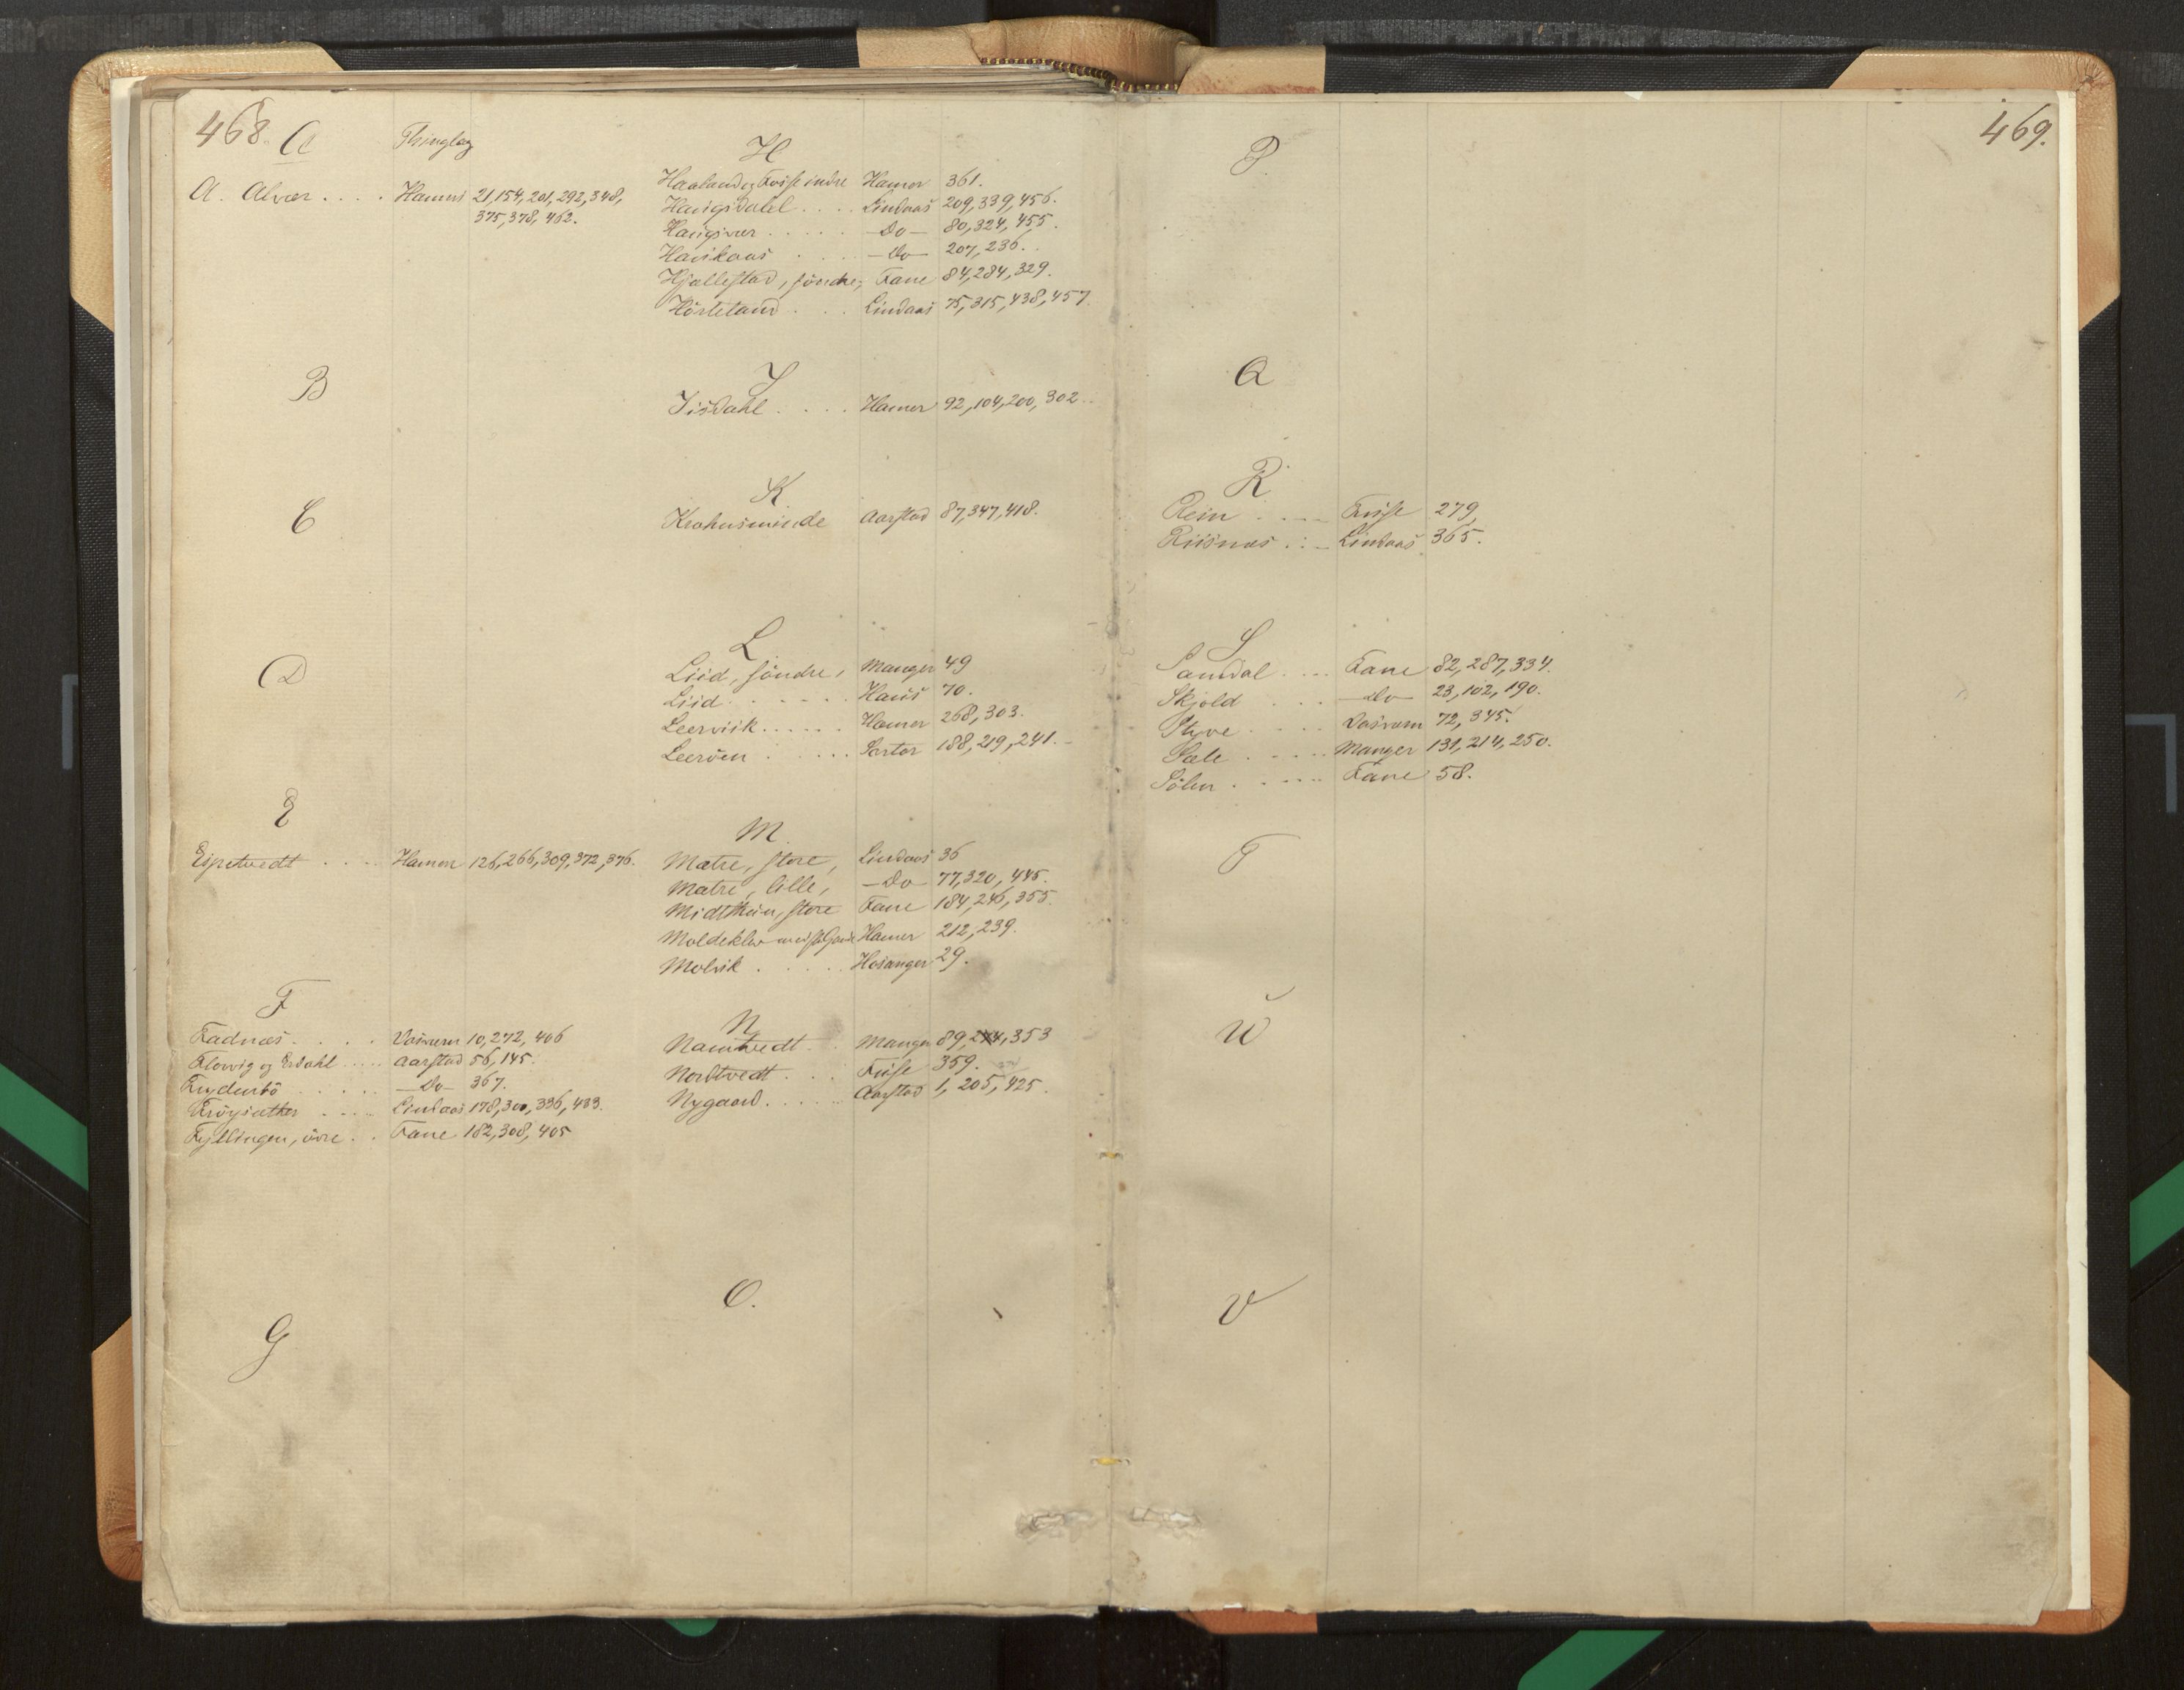 468.
A
Thinglag
A. Alvær .... Hamre 21, 154, 201, 292, 348,
375, 378, 462.
B
C
D
E
Espetvedt .... Hamre 126, 266, 309, 372, 376.
F
Fadnæs .... Vosvern 10, 272, 406
Flovvig og Erdahl .... Aarstad 56, 145.
Frydenbö .... -Do- 367.
Fröysæther .... Lindaas 178, 300, 336, 433.
Fyllingen, övre .. Fane 182, 308, 405
G
H
Haaland og Fosse indre Hamer 361.
Haugsdalel .... Lindaas 209, 339, 456.
Haugsvær ..... -Do- 80, 324, 455.
Haukaas .... -Do- 207, 236.
Hjellestad, söndre, Fane 84, 284, 329.
Hörteland ... Lindaas 75, 315, 438, 457.
I
Iisdahl .... Hamer 92, 104, 200, 302.
K
Krohnsminde Aarstad 87, 347, 418.
L
Liid, söndre, Manger 49
Liid ...... Haus 70.
Leerviik ...... Hamer 268, 303.
Leeröen ...... Sartor 188, 219, 241.
M.
Matre, store, Lindaas 36
Matre, lille, -Do- 77, 320, 445.
Midtthun, store Fane 184, 246, 355.
Moldeklev Hamer 212, 239.
Molvik ..... Hosanger 29.
N
Namtvedt .. Manger 89, 353
Nordtvedt ... Fuse 359.
Nygaard ..... Aarstad 1, 205, 425.
O.
469.
P.
Q
R
Rein .... Fuse 279,
Riisnæs ... Lindaas 365.
S
Samdal .... Fane 82, 287, 334.
Skjold ... -Do- 23, 102, 190.
Styve .... Vosvern 72, 345.
Sæle ..... Manger 131, 214, 250.
Sölen ..... Fane 58.
T
U
V